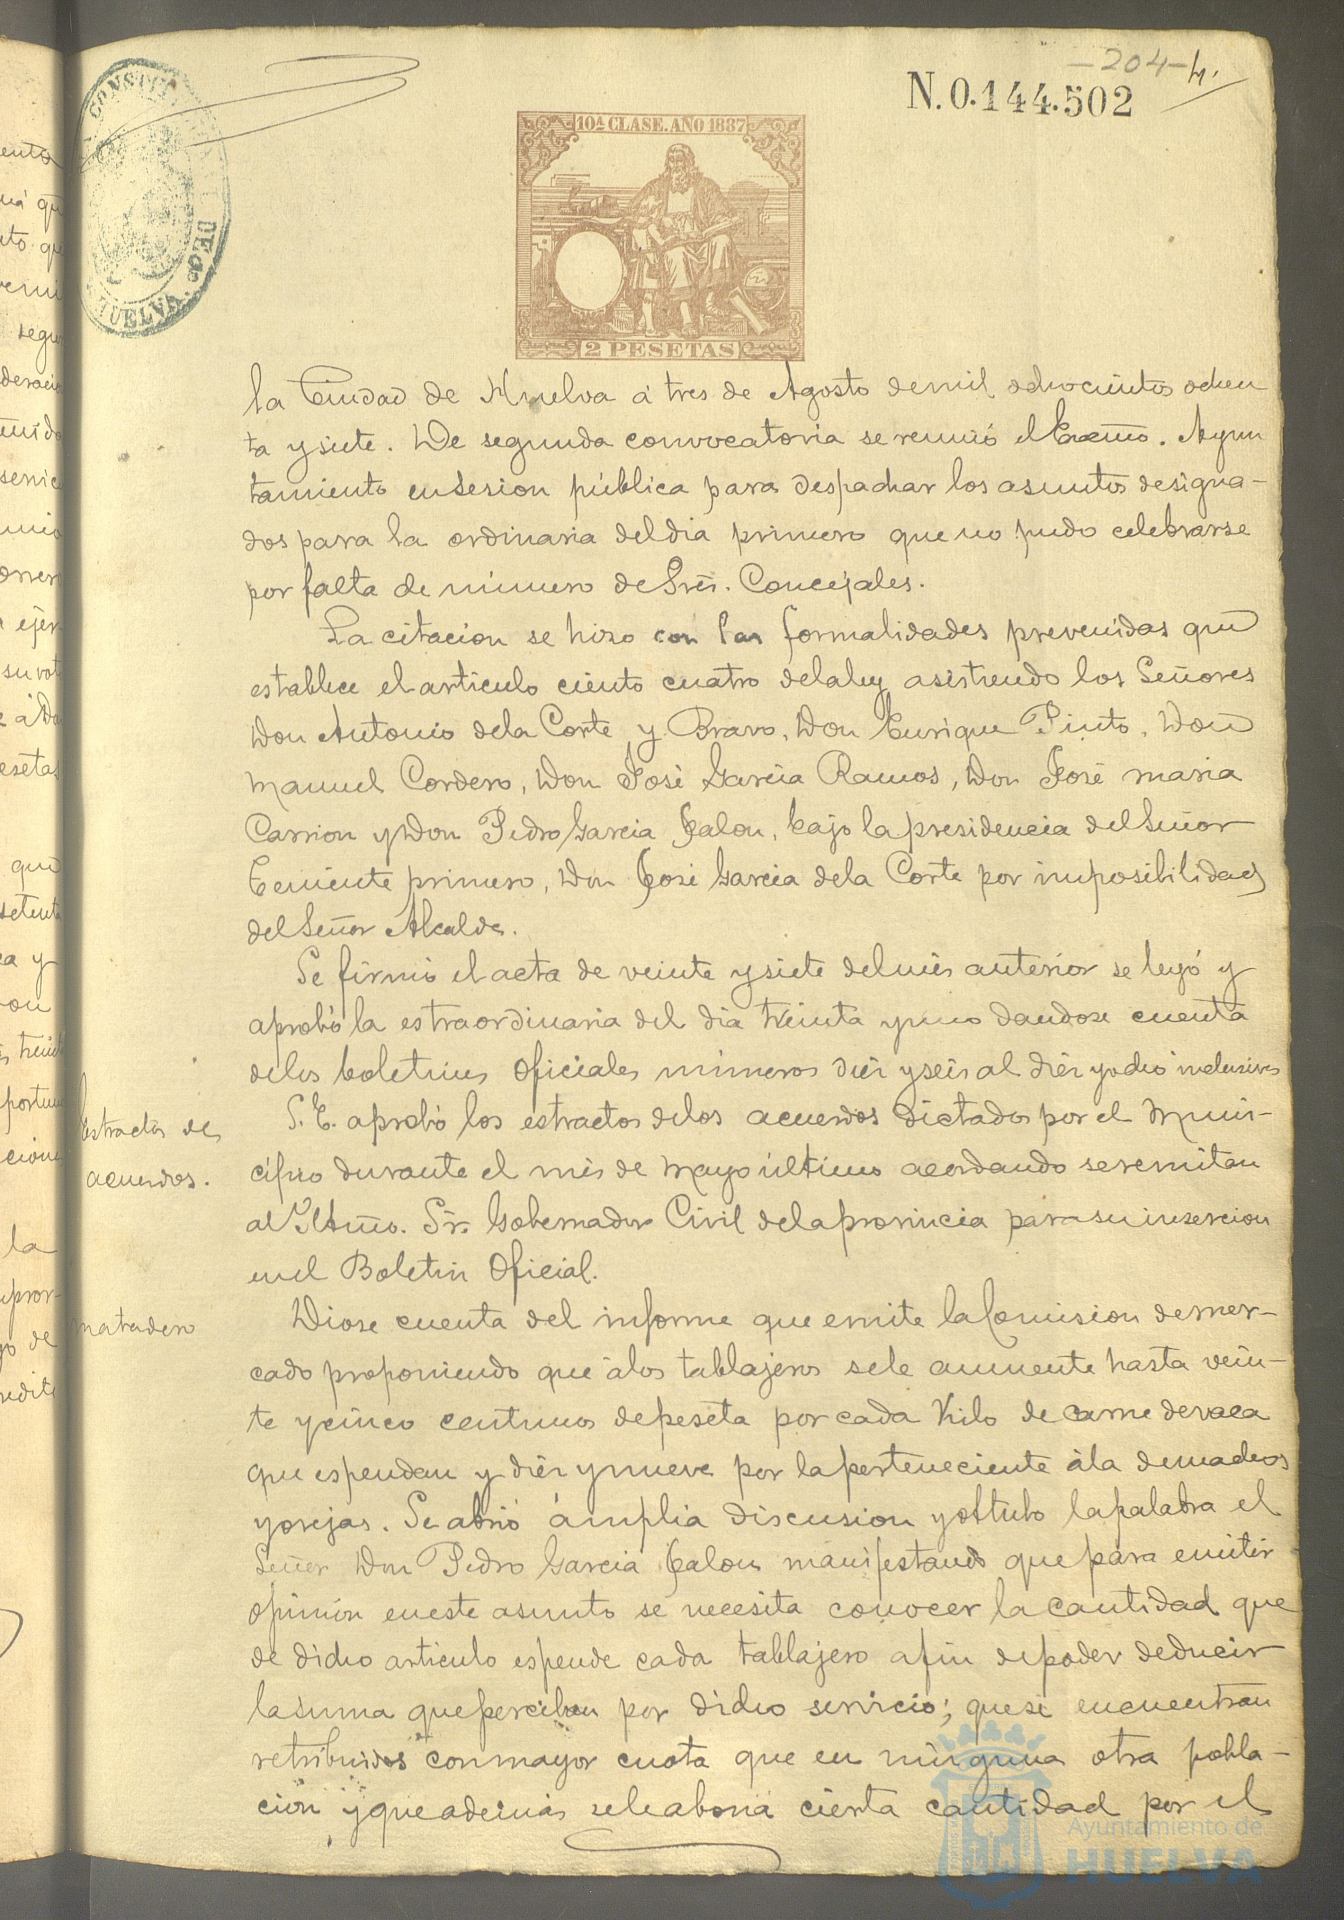 -204- 4.
N.0.144.502
CONSTI
DE
HUELVA.
10ª CLASE. AÑO 1887
2 PESETAS
la Ciudad de Huelva á tres de Agosto demil ochocientos ochen
ta y siete. De segunda convocatoria se reunió el Excmo. Ayun
tamiento en sesion pública para despachar los asuntos designa-
dos para la ordinaria del dia primero que no pudo celebrarse
por falta de número de Sres. Concejales.
La citacion se hizo con las formalidades prevenidas que
establece el articulo ciento cuatro dela ley asistiendo los Señores
Don Antonio dela Corte y Bravo, Don Enrique Pinto, Don
Manuel Cordero, Don José Garcia Ramos, Don José maria
Carrion y Don Pedro Garcia Jalon, bajo la presidencia del Señor
Teniente primero, Don José Garcia dela Corte por imposibilidad
del Señor Alcalde.
Se firmó el acta de veinte y siete del mes anterior se leyó y
aprobó la estraordinaria del dia treinta y uno dandose cuenta
delos boletines Oficiales números diez y seis al diez y ocho inclusives
Estractos de
acuerdos.
S. E. aprobó los estractos delos acuerdos dictados por el Muni-
cipio durante el mes de Mayo último acordando se remitan
al Iltmo. Sr. Gobernador Civil dela provincia para su insercion
en el Boletin Oficial.
matadero
Diose cuenta del informe que emite la Comision de mer-
cado proponiendo que á los tablajeros se le aumente hasta vein-
te y cinco centimos de peseta por cada Kilo de carne de vaca
que espendan y diez y nueve por la perteneciente á la de machos
y orejas. Se abrió ámplia discusion y obtubo la palabra el
Señor Don Pedro Garcia Jalon manifestando que para emitir
opinión en este asunto se necesita conocer la cantidad que
de dicho articulo espende cada tablajero a fin de poder deducir
la suma que perciben por dicho servicio; que si encuentran
retribuidos con mayor cuota que en ninguna otra pobla-
ción y que además se le abona cierta cantidad por el
Ayuntamiento de
HUELVA